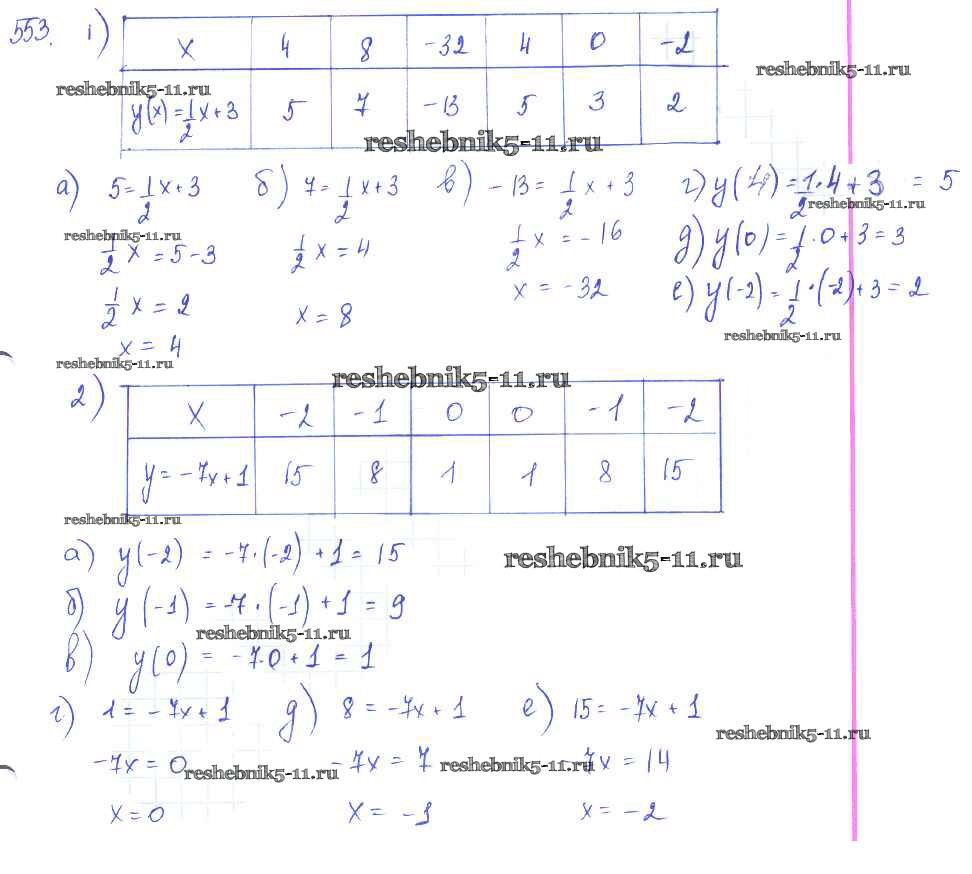 553. 1)
x 4 8 -32 4 0 -2
reshebnik5-11.ru
reshebnik5-11.ru
y(x)=1/2x+3 5 7 -13 5 3 2
reshebnik5-11.ru
а) 5=1/2x+3 б) 7=1/2x+3 в) -13=1/2x+3 г) y(4)=1/2·4+3=5
reshebnik5-11.ru
reshebnik5-11.ru
1/2x=5-3 1/2x=4 1/2x=-16 д) y(0)=1/2·0+3=3
1/2x=2 x=8 x=-32 е) y(-2)=1/2·(-2)+3=2
reshebnik5-11.ru
x=4
reshebnik5-11.ru
reshebnik5-11.ru
2)
x -2 -1 0 0 -1 -2
y=-7x+1 15 8 1 1 8 15
reshebnik5-11.ru
а) y(-2)=-7·(-2)+1=15
reshebnik5-11.ru
б) y(-1)=-7·(-1)+1=9
reshebnik5-11.ru
в) y(0)=-7·0+1=1
г) 1=-7x+1 д) 8=-7x+1 е) 15=-7x+1
reshebnik5-11.ru
-7x=0 -7x=7 -7x=14
reshebnik5-11.ru
reshebnik5-11.ru
x=0 x=-1 x=-2